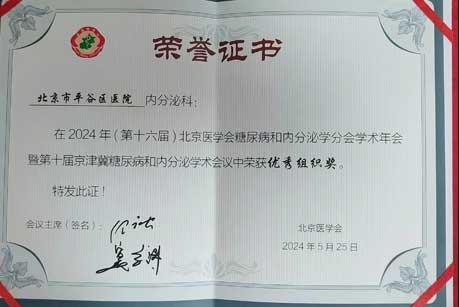 荣誉证书
北京市平谷区医院 内分泌科：
在2024年（第十六届）北京医学会糖尿病和内分泌学分会学术年会
暨第十届京津冀糖尿病和内分泌学术会议中荣获优秀组织奖。
特发此证！
会议主席（签名）：
北京医学会
2024年5月25日